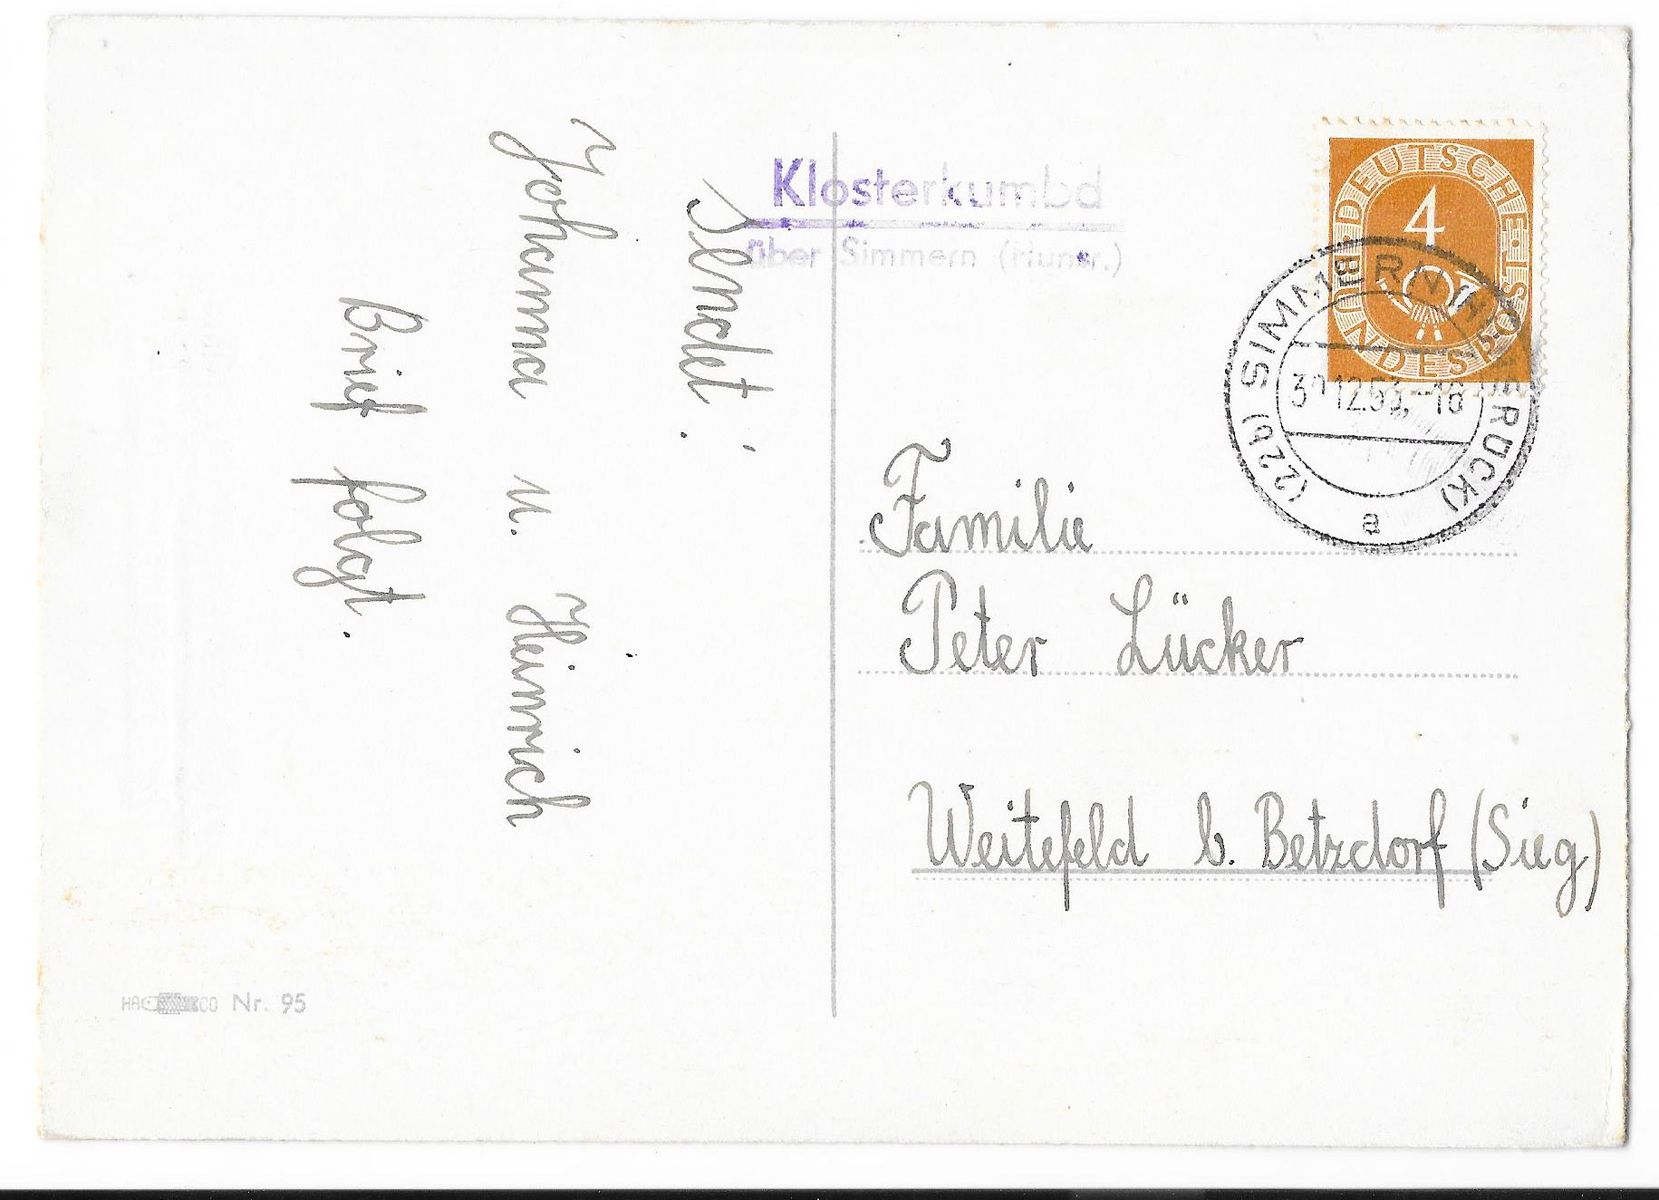 sendet:
Johanna u. Heinrich
Brief folgt.
Klosterkumbd
über Simmern (Hunsr.)
DEUTSCHE BUNDESPOST
4
(22b) SIMMERN (HUNSRÜCK)
12.53.-18
a
Familie
Peter Lücker
Weitefeld b. Betzdorf (Sieg)
Nr. 95